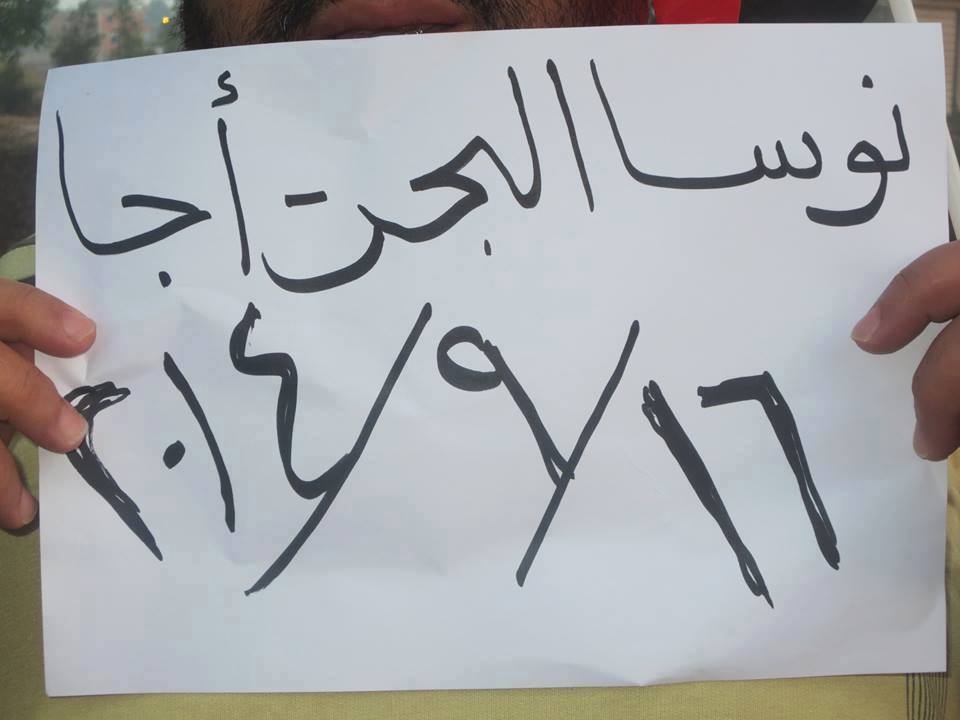 نوسا البحر - أجا
١٦/٩/٢٠١٤